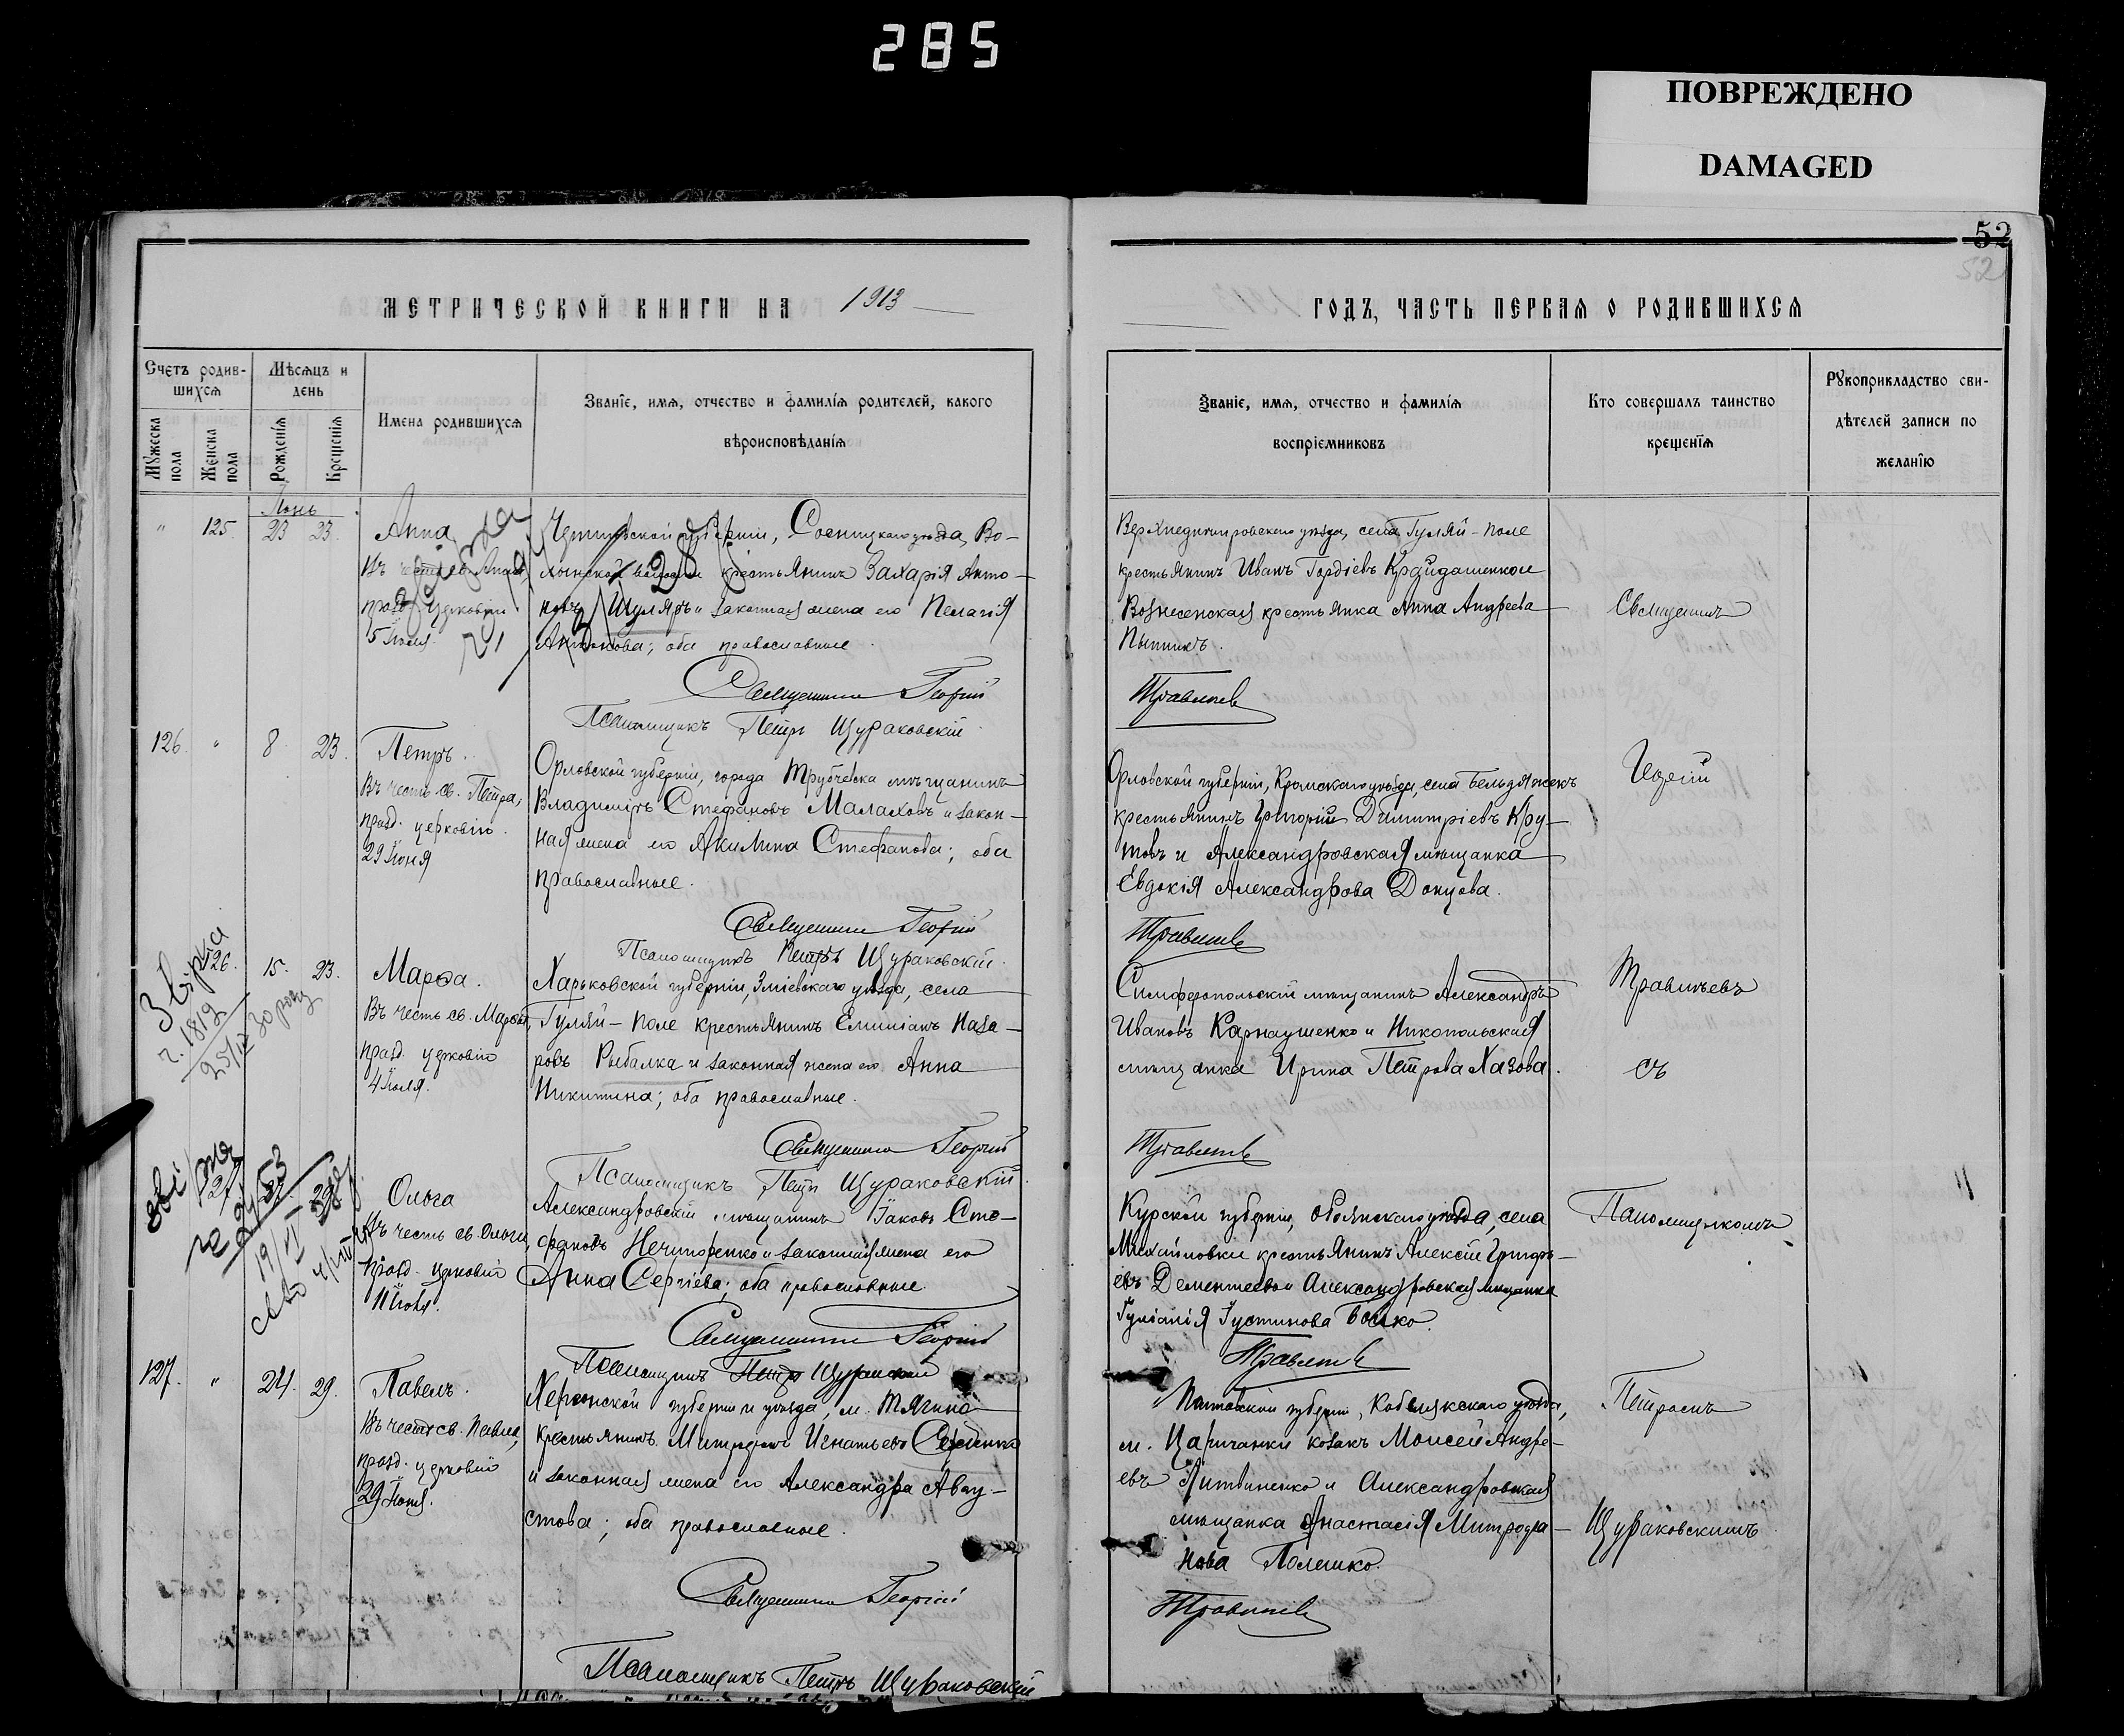 285
ПОВРЕЖДЕНО
DAMAGED
52
52
МЕТРИЧЕСКОЙ КНИГИ НА 1913
ГОДЪ, ЧАСТЬ ПЕРВАЯ О РОДИВШИХСЯ
Счетъ родив-
шихся
Мѣсяцъ и
день
Мужеска пола
Женска пола
Рожденія
Крещенія
Имена родившихся
Званіе, имя, отчество и фамилія родителей, какого
вѣроисповѣданія
Званіе, имя, отчество и фамилія
воспріемниковъ
Кто совершалъ таинство
крещенія
Рукоприкладство сви-
дѣтелей записи по
желанію
" 125. 23 23.
Анна
празд. церковію
5 Іюля.
Черниговской губерніи, Сосницкаго уѣзда, Во-
лынской волости крестьянинъ Захарія Анто-
новъ Шуляръ и законная жена его Пелагія
Антонова; оба православные.
Священникъ Георгій
Псаломщикъ Петръ Щураковскій.
Верхнеднепровскаго уѣзда, села Гуляй-поле
крестьянинъ Иванъ Гордіевъ
Вознесенская крестьянка Анна Андреева
Травинъ
Священникъ
126. " 8. 23.
Петръ.
Въ честь св. Петра,
празд. церковію.
29 Іюня
Орловской губерніи, города Трубчевска мѣщанинъ
Владиміръ Стефановъ Малаховъ и закон-
ная жена его Акилина Стефанова; оба
православные.
Священникъ Георгій
Псаломщикъ Петръ Щураковскій.
Орловской губерніи, Кромскаго уѣзда, села Бельдяжекъ
крестьянинъ Григорій Димитріевъ Кру-
товъ и Александровская мѣщанка
Евдокія Александрова Донцова.
Георгій
Звірка
ч. 1819
126. 15. 23.
Марѳа.
Въ честь св. Марѳы,
празд. церковію
4 Іюля.
Харьковской губерніи, Зміевскаго уѣзда, села
Гуляй-поле крестьянинъ Емиліанъ Наза-
ровъ Рыбалка и законная жена его Анна
Никитина; оба православные.
Священникъ Георгій
Псаломщикъ Петръ Щураковскій.
Симферопольскій мѣщанинъ Александръ
Ивановъ Карнаушенко и Никопольская
мѣщанка Ирина Петрова Хазова.
Травиньевъ
съ
Ольга
Въ честь св. Ольги,
празд. церковію
11 Іюля.
Александровскій мѣщанинъ Іаковъ Сте-
фановъ Нечипоренко и законная жена его
Анна Сергіева; оба православные.
Священникъ Георгій
Псаломщикъ Петръ Щураковскій
Курской губерніи, Обоянскаго уѣзда, села
Михайловки крестьянинъ Алексій Григорь-
евъ Дементьевъ и Александровская мѣщанка
Іуліанія Іустинова Бойко.
Псаломщикомъ
127. " 24. 29.
Павелъ.
Въ честь св. Павла,
празд. церковію
29 Іюня.
Херсонской губерніи и уѣзда, м. Тягина
крестьянинъ Митрофанъ Игнатьевъ
и законная жена его Александра Авгу-
стова; оба православные.
Священникъ Георгій
Псаломщикъ Петръ Щураковскій
Полтавской губерніи, Кобелякскаго уѣзда,
м. Царичанки козакъ Моисей Андре-
евъ Литвиненко и Александровская
мѣщанка Анастасія Митрофа-
нова Полешко.
Петромъ
Щураковскимъ